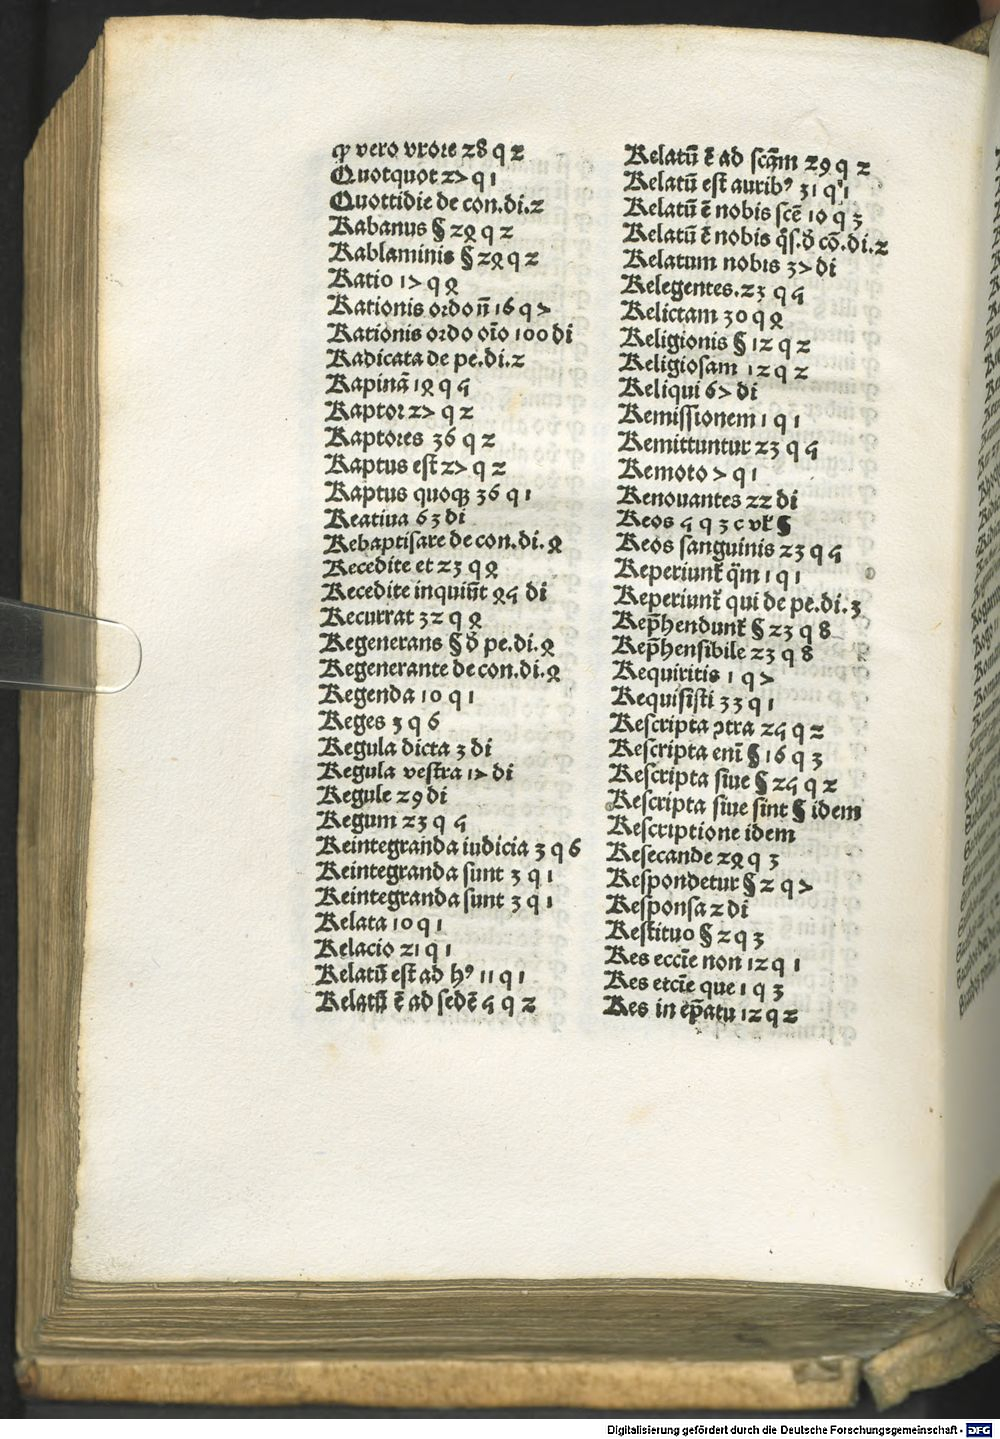 ꝙ vero vrore 28 q 2
Quotquot 27 q 1
Quottidie de con.di.2
Rabanus § 24 q 2
Rablaminis § 24 q 2
Ratio 17 q 4
Rationis ordo n̄ 16 q 7
Rationis ordo oīo 100 di
Radicata de pe.di.2
Rapinā 14 q 5
Raptor 27 q 2
Raptores 36 q 2
Raptus est 27 q 2
Raptus quoqꝫ 36 q 1
Reatina 63 di
Rebaptisare de con.di.4
Recedite et 23 q 4
Recedite inquiūt 45 di
Recurrat 32 q 4
Regenerans § ð pe.di.4
Regenerante de con.di.4
Regenda 10 q 1
Reges 3 q 6
Regula dicta 3 di
Regula vestra 17 di
Regule 29 di
Regum 23 q 5
Reintegranda iudicia 3 q 6
Reintegranda sunt 3 q 1
Reintegranda sunt 3 q 1
Relata 10 q 1
Relacio 21 q 1
Relatū est ad hꝰ 11 q 1
Relatū ē ad sedē 5 q 2
Relatū ē ad scām 29 q 2
Relatū est auribꝰ 31 q 1
Relatū ē nobis scē 10 q 3
Relatū ē nobis q̄s.ð cō.di.2
Relatum nobis 37 di
Relegentes.23 q 5
Relictam 30 q 4
Religionis § 12 q 2
Religiosam 12 q 2
Reliqui 67 di
Remissionem 1 q 1
Remittuntur 23 q 5
Remoto 7 q 1
Renouantes 22 di
Reos 5 q 3 c vlt̄ §
Reos sanguinis 23 q 5
Reperiunt̄ q̄m 1 q 1
Reperiunt̄ qui de pe.di.3
Rep̄hendunt̄ § 23 q 8
Rep̄hensibile 23 q 8
Requiritis 1 q 7
Requisisti 33 q 1
Rescripta ↄtra 25 q 2
Rescripta enī § 16 q 3
Rescripta siue § 25 q 2
Rescripta siue sint § idem
Rescriptione idem
Resecande 24 q 3
Respondetur § 2 q 7
Responsa 2 di
Restituo § 2 q 3
Res eccīe non 12 q 1
Res etcīe que 1 q 3
Res in ep̄atu 12 q 2
Digitalisierung gefördert durch die Deutsche Forschungsgemeinschaft - DFG